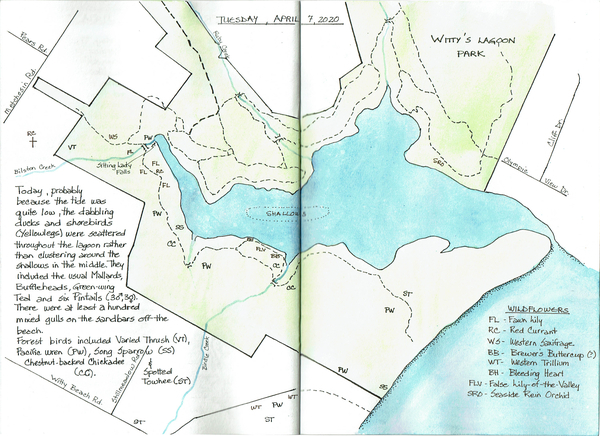 TUESDAY, APRIL 7, 2020
WITTY'S LAGOON
PARK
Pears Rd
Metchosin Rd
RC
VT
WS
PW
FL
Bilston Creek
Sitting Lady
Falls
FL
RC
FL
PW
SS
CC
PW
BB
FLV
BH
CC
CC
SHALLOWS
SRO
Olympic
View Dr.
Cliff Dr.
ST
PW
PW
SS
WT
PW
WT
WT
ST
ST
Today, probably
because the tide was
quite low, the dabbling
ducks and shorebirds
(Yellowlegs) were scattered
throughout the lagoon rather
than clustering around the
shallows in the middle. They
included the usual Mallards,
Buffleheads, Green-wing
Teal and six Pintails (3♂, 3♀).
There were at least a hundred
mixed gulls on the sandbars off the
beach.
Forest birds included Varied Thrush (VT),
Pacific wren (PW), Song Sparrow (SS)
Chestnut-backed Chickadee
(CC).
&
Spotted
Towhee (ST)
Witty Beach Rd.
WILDFLOWERS
FL - Fawn Lily
RC - Red Currant
WS - Western Saxifrage
BB - Brewer's Buttercup (?)
WT - Western Trillium
BH - Bleeding Heart
FLV - False Lily-of-the-Valley
SRO - Seaside Rein Orchid